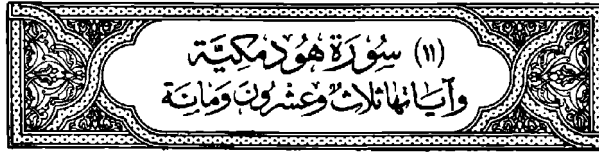 (١١) سُورَةُ هُود مَكيَّة
وَآيَاتُهَا ثَلَاثٌ وَعِشْرُونَ وَمَائَة